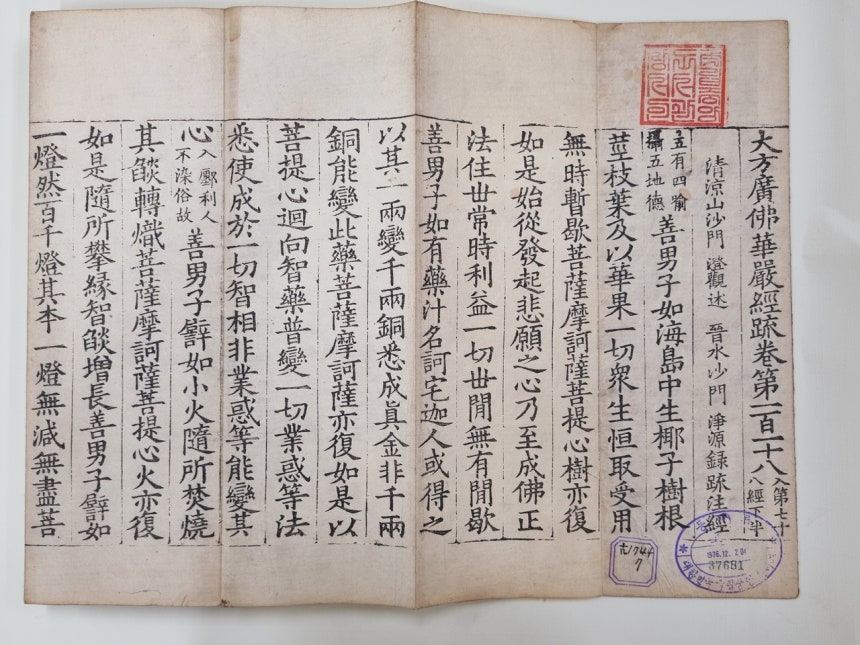 大方廣佛華嚴經䟽卷第一百一十八
入第七十
八經下半
清涼山沙門 澄觀述 晉水沙門 淨源録䟽注經
五有四喻
攝五地德
善男子如海島中生椰子樹根
莖枝葉及以華果一切衆生恒取受用
無時暫歇菩薩摩訶薩菩提心樹亦復
如是始從發起悲願之心乃至成佛正
法住世常時利益一切世閒無有閒歇
善男子如有藥汁名訶宅迦人或得之
以其一兩變千兩銅悉成眞金非千兩
銅能變此藥菩薩摩訶薩亦復如是以
菩提心迴向智藥普變一切業惑等法
悉使成於一切智相非業惑等能變其
心
入鄽利人
不染俗故
善男子譬如小火隨所焚燒
其燄轉熾菩薩摩訶薩菩提心火亦復
如是隨所攀緣智燄增長善男子譬如
一燈然百千燈其本一燈無減無盡菩
1976.12.2
37691